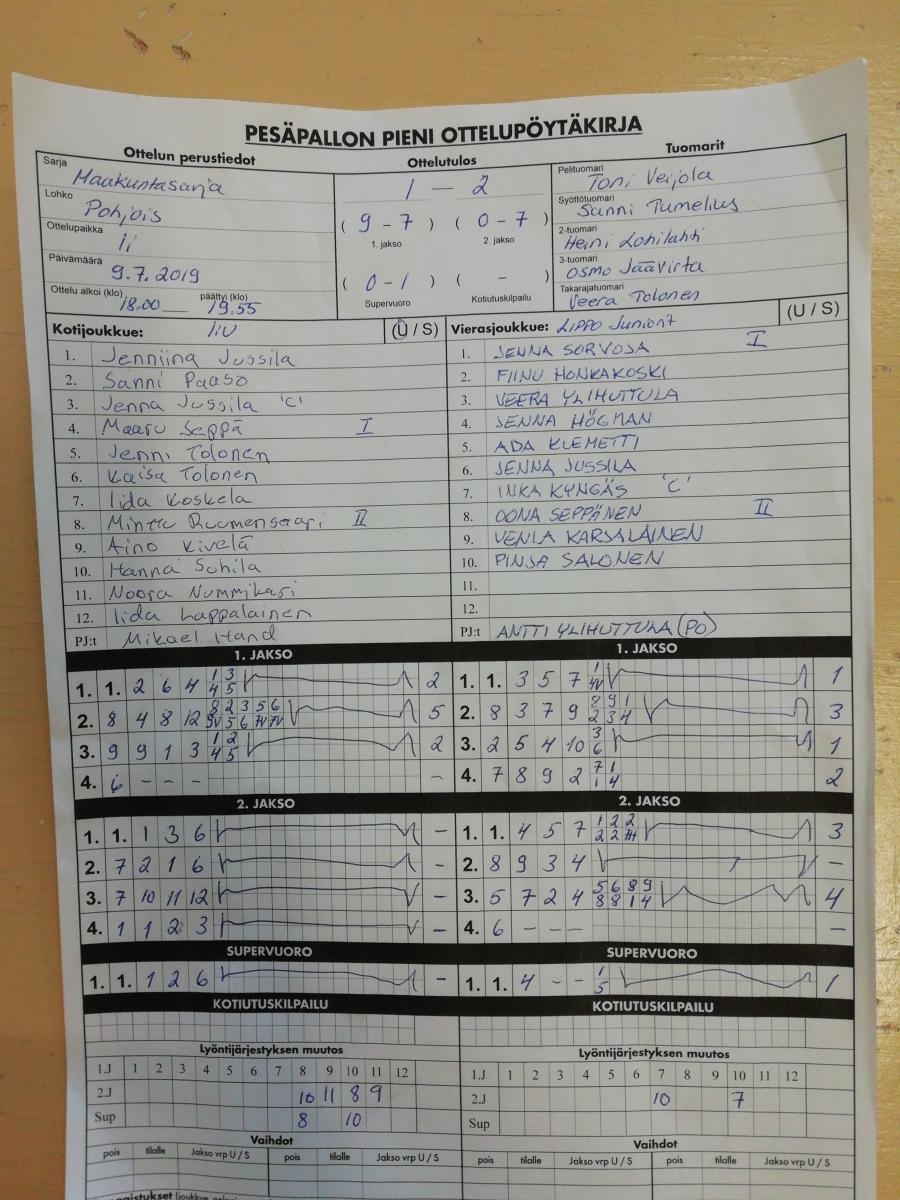 PESÄPALLON PIENI OTTELUPÖYTÄKIRJA
Ottelun perustiedot
Sarja Maakuntasarja
Lohko Pohjois
Ottelupaikka Ii
Päivämäärä 9.7.2019
Ottelu alkoi (klo) 18.00 päättyi (klo) 19.55
Ottelutulos
1 – 2
( 9 - 7 ) ( 0 - 7 )
1. jakso 2. jakso
( 0 - 1 ) ( - )
Supervuoro Kotiutuskilpailu
Tuomarit
Pelituomari Toni Veijola
Syöttötuomari Sanni Tumelius
2-tuomari Heini Lohilahti
3-tuomari Osmo Jäävirta
Takarajatuomari Veera Tolonen
Kotijoukkue: IiU (U / S)
1. Jenniina Jussila
2. Sanni Paaso
3. Jenna Jussila 'C'
4. Maaru Seppä I
5. Jenni Tolonen
6. Kaisa Tolonen
7. Iida Koskela
8. Minttu Ruumensaari II
9. Aino Kivelä
10. Hanna Sohila
11. Noora Nummikari
12. Iida Lappalainen
PJ:t Mikael Hand
Vierasjoukkue: LIPPO Juniorit (U / S)
1. JENNA SORVOJA I
2. FIINU HONKAKOSKI
3. VEERA YLIHUTTULA
4. JENNA HÖGMAN
5. ADA KLEMETTI
6. JENNA JUSSILA
7. INKA KYNGÄS 'C'
8. OONA SEPPÄNEN II
9. VENLA KARSALAINEN
10. PINJA SALONEN
11.
12.
PJ:t ANTTI YLIHUTTULA (PO)
1. JAKSO
1. 1. 2 6 4 1 3 2
4 5
2. 8 4 8 12 8 2 3 5 6 5
9V 5 6 7V 7V
3. 9 9 1 3 1 2 2
4 5
4. 6 - - - -
1. JAKSO
1. 1. 3 5 7 1 1
4V
2. 8 3 7 9 8 9 1 3
2 3 4
3. 2 5 4 10 3 1
6
4. 7 8 9 2 7 1 2
1 4
2. JAKSO
1. 1. 1 3 6 -
2. 7 2 1 6 -
3. 7 10 11 12 -
4. 1 1 2 3 -
2. JAKSO
1. 1. 4 5 7 1 2 2 3
2 2
2. 8 9 3 4 -
3. 5 7 2 4 5 6 8 9 4
8 8 1 4
4. 6 - - - -
SUPERVUORO
1. 1. 1 2 6 -
SUPERVUORO
1. 1. 4 - - 1 1
5
KOTIUTUSKILPAILU
KOTIUTUSKILPAILU
Lyöntijärjestyksen muutos
1.J 1 2 3 4 5 6 7 8 9 10 11 12
2.J 10 11 8 9
Sup 8 10
Lyöntijärjestyksen muutos
1.J 1 2 3 4 5 6 7 8 9 10 11 12
2.J 10 7
Sup
Vaihdot
pois tilalle Jakso vrp U / S pois tilalle Jakso vrp U / S
Vaihdot
pois tilalle Jakso vrp U / S pois tilalle Jakso vrp U / S